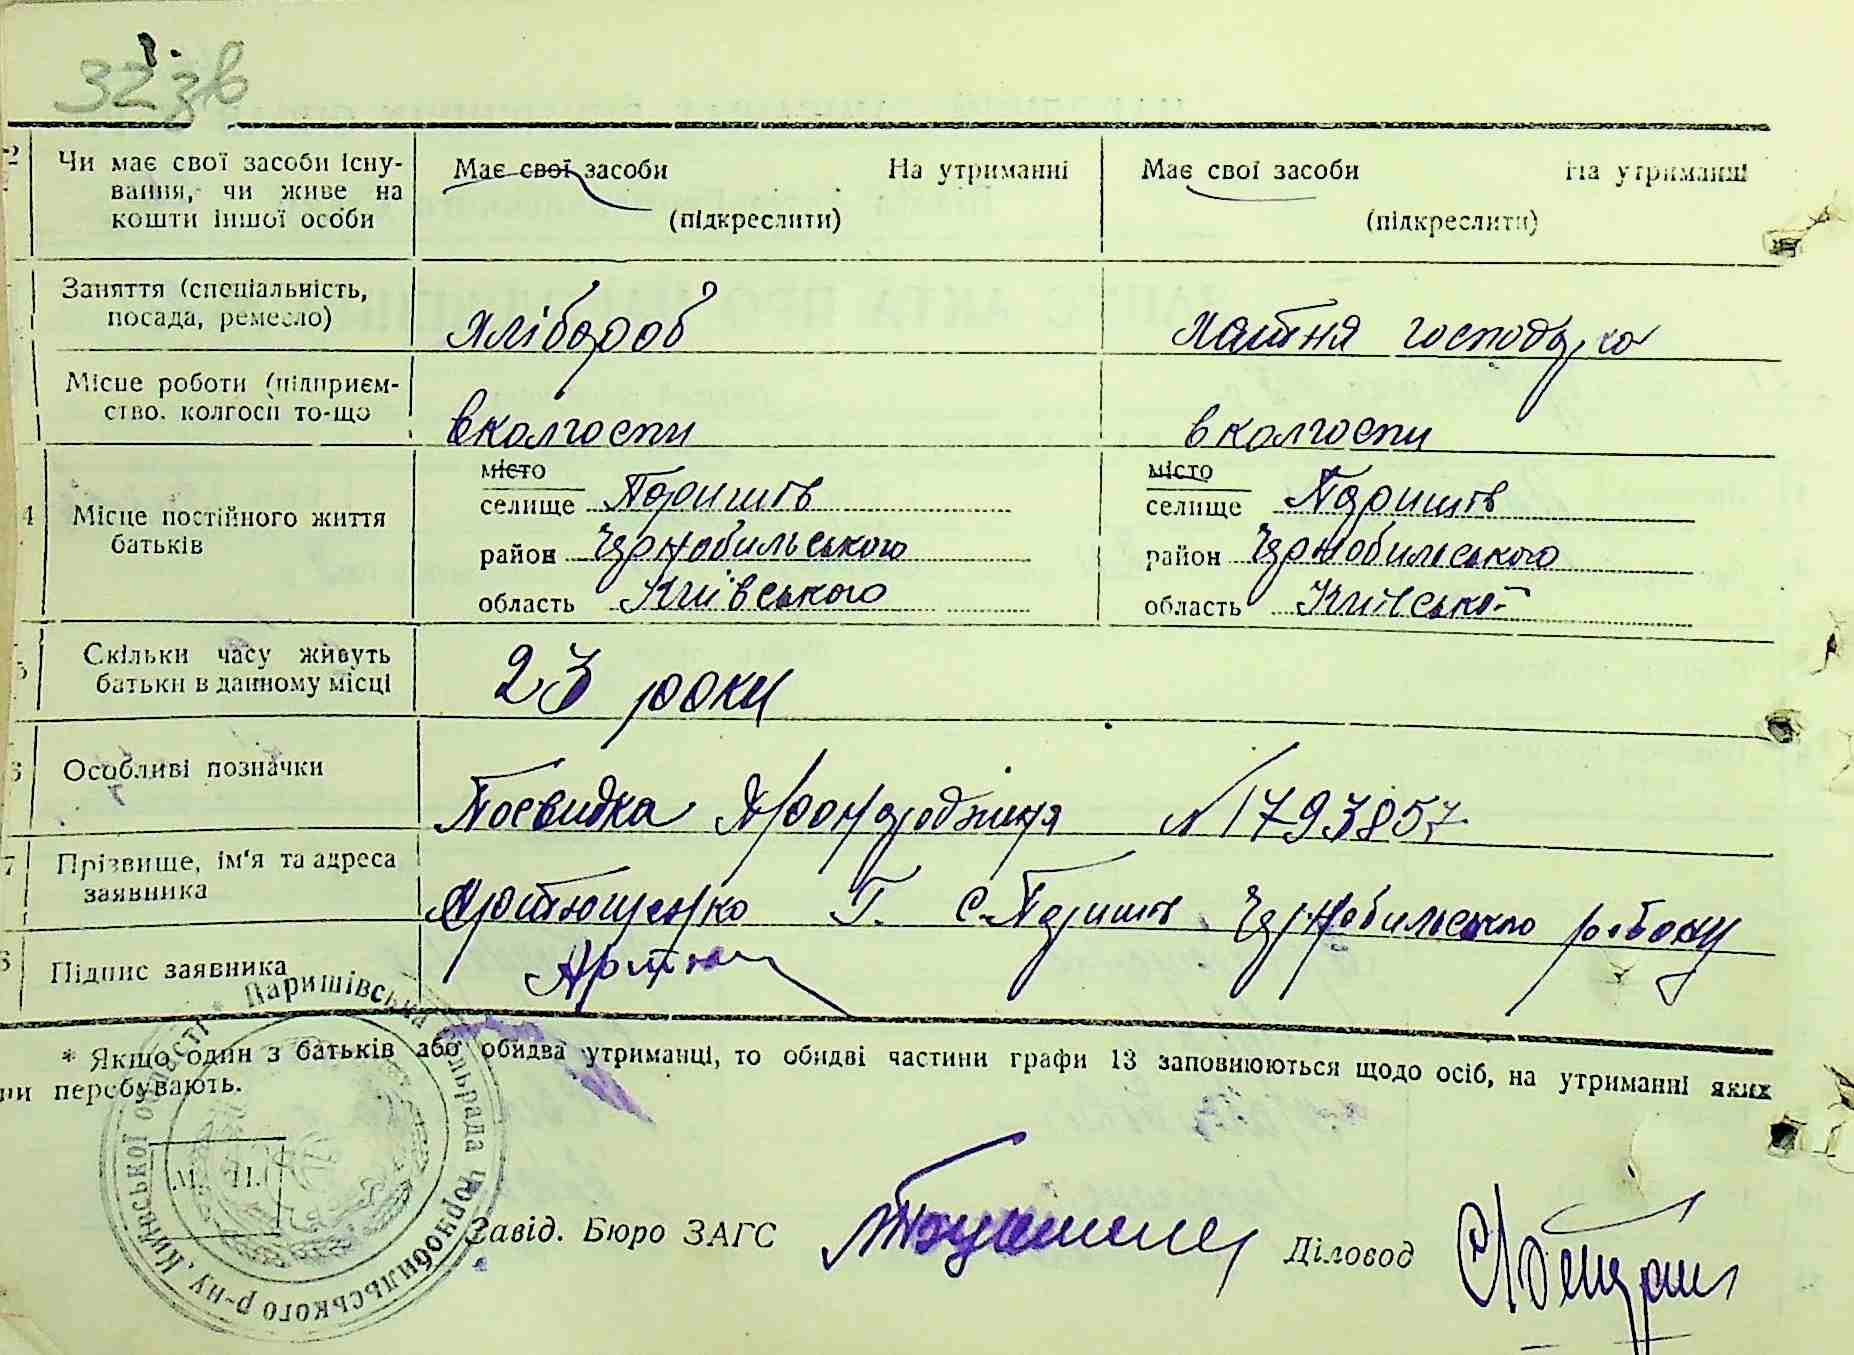 32 зв
2 Чи має свої засоби існу- Має свої засоби На утриманні Має свої засоби На утриманні
вання, чи живе на
кошти іншої особи (підкреслити) (підкреслити)
Заняття (спеціальність,
посада, ремесло) хлібороб хатня господарка
Місце роботи (підприєм-
ство. колгосп то-що вколгоспи в колгоспи
місто місто
4 Місце постійного життя селище Паришів селище Паришів
батьків район Чернобильського район Чернобильського
область Київського область Київської
5 Скільки часу живуть
батьки в данному місці 23 роки
6 Особливі позначки Посвидка № 1793857
7 Прізвище, ім'я та адреса
заявника Артюшенко Г. с. Паришів Чернобильського району
8 Підпис заявника Артюш
* Якщо один з батьків або обидва утриманці, то обидві частини графи 13 заповнюються щодо осіб, на утриманні яких
ни перебувають.
Паришівська сільрада Чорнобильського р-ну, Київської області *
М. П.
Завід. Бюро ЗАГС Діловод